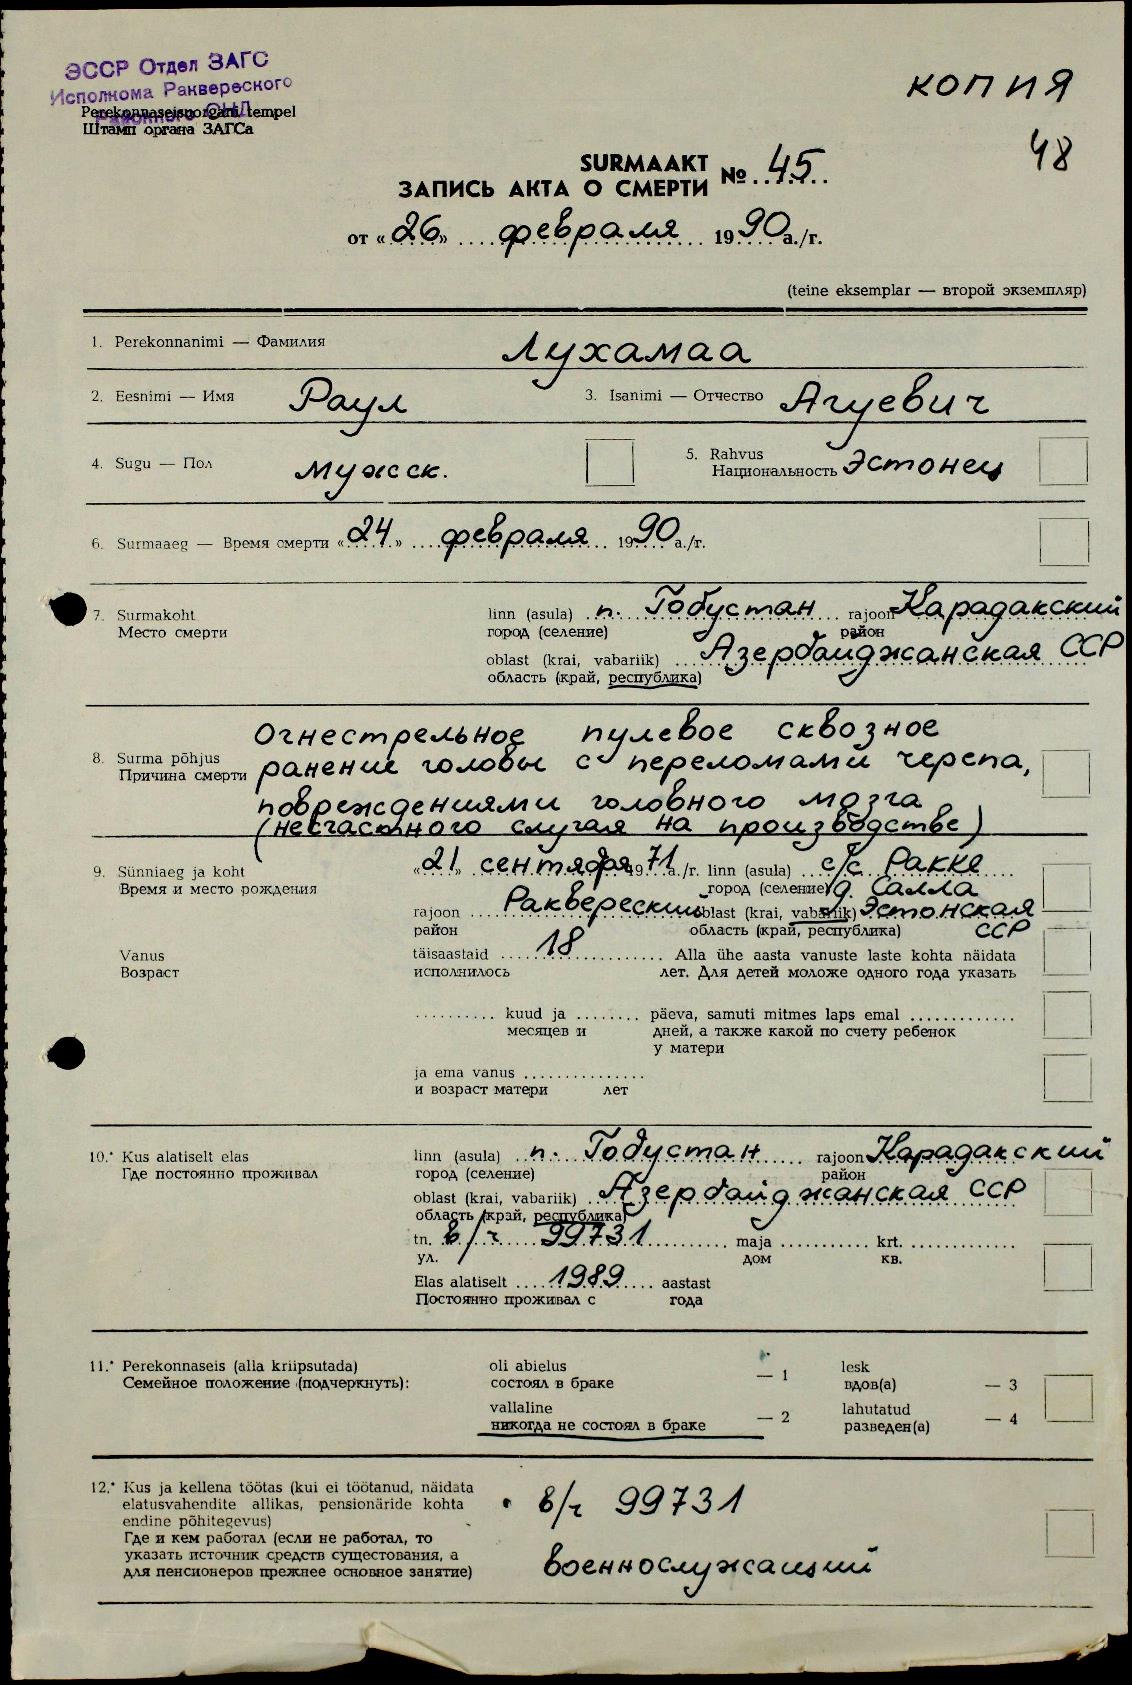 ЭССР Отдел ЗАГС
Исполкома Раквереского
Районного СНД
Perekonnaseisuorgani tempel
Штамп органа ЗАГСа
КОПИЯ
48
SURMAAKT
ЗАПИСЬ АКТА О СМЕРТИ № 45
от «26» февраля 1990 a./г.
(teine eksemplar — второй экземпляр)
1. Perekonnanimi — Фамилия Лухамаа
2. Eesnimi — Имя Раул 3. Isanimi — Отчество Агуевич
4. Sugu — Пол мужск. 5. Rahvus
Национальность Эстонец
6. Surmaaeg — Время смерти «24» февраля 1990 a./г.
7. Surmakoht linn (asula) п. Гобустан rajoon Карадакский
Место смерти город (селение) район
oblast (krai, vabariik) Азербайджанская ССР
область (край, республика)
Огнестрельное пулевое сквозное
8. Surma põhjus
Причина смерти ранение головы с переломами черепа,
повреждениями головного мозга
(несчастного случая на производстве)
9. Sünniaeg ja koht «21» сентября 1971 a./г. linn (asula) с/с Ракке
Время и место рождения город (селение) д. Салла
rajoon Раквереский oblast (krai, vabariik) Эстонская
район область (край, республика) ССР
Vanus täisaastaid 18 Alla ühe aasta vanuste laste kohta näidata
Возраст исполнилось лет. Для детей моложе одного года указать
kuud ja päeva, samuti mitmes laps emal
месяцев и дней, а также какой по счету ребенок
у матери
ja ema vanus
и возраст матери лет
10.* Kus alatiselt elas linn (asula) п. Гобустан rajoon Карадакский
Где постоянно проживал город (селение) район
oblast (krai, vabariik) Азербайджанская ССР
область (край, республика)
tn. в/ч 99731 maja krt.
ул. дом кв.
Elas alatiselt 1989 aastast
Постоянно проживал с года
11.* Perekonnaseis (alla kriipsutada) oli abielus — 1 lesk — 3
Семейное положение (подчеркнуть): состоял в браке вдов(а)
vallaline — 2 lahutatud — 4
никогда не состоял в браке разведен(а)
12.* Kus ja kellena töötas (kui ei töötanud, näidata
elatusvahendite allikas, pensionäride kohta в/ч 99731
endine põhitegevus)
Где и кем работал (если не работал, то
указать источник средств существования, а военнослужащий
для пенсионеров прежнее основное занятие)